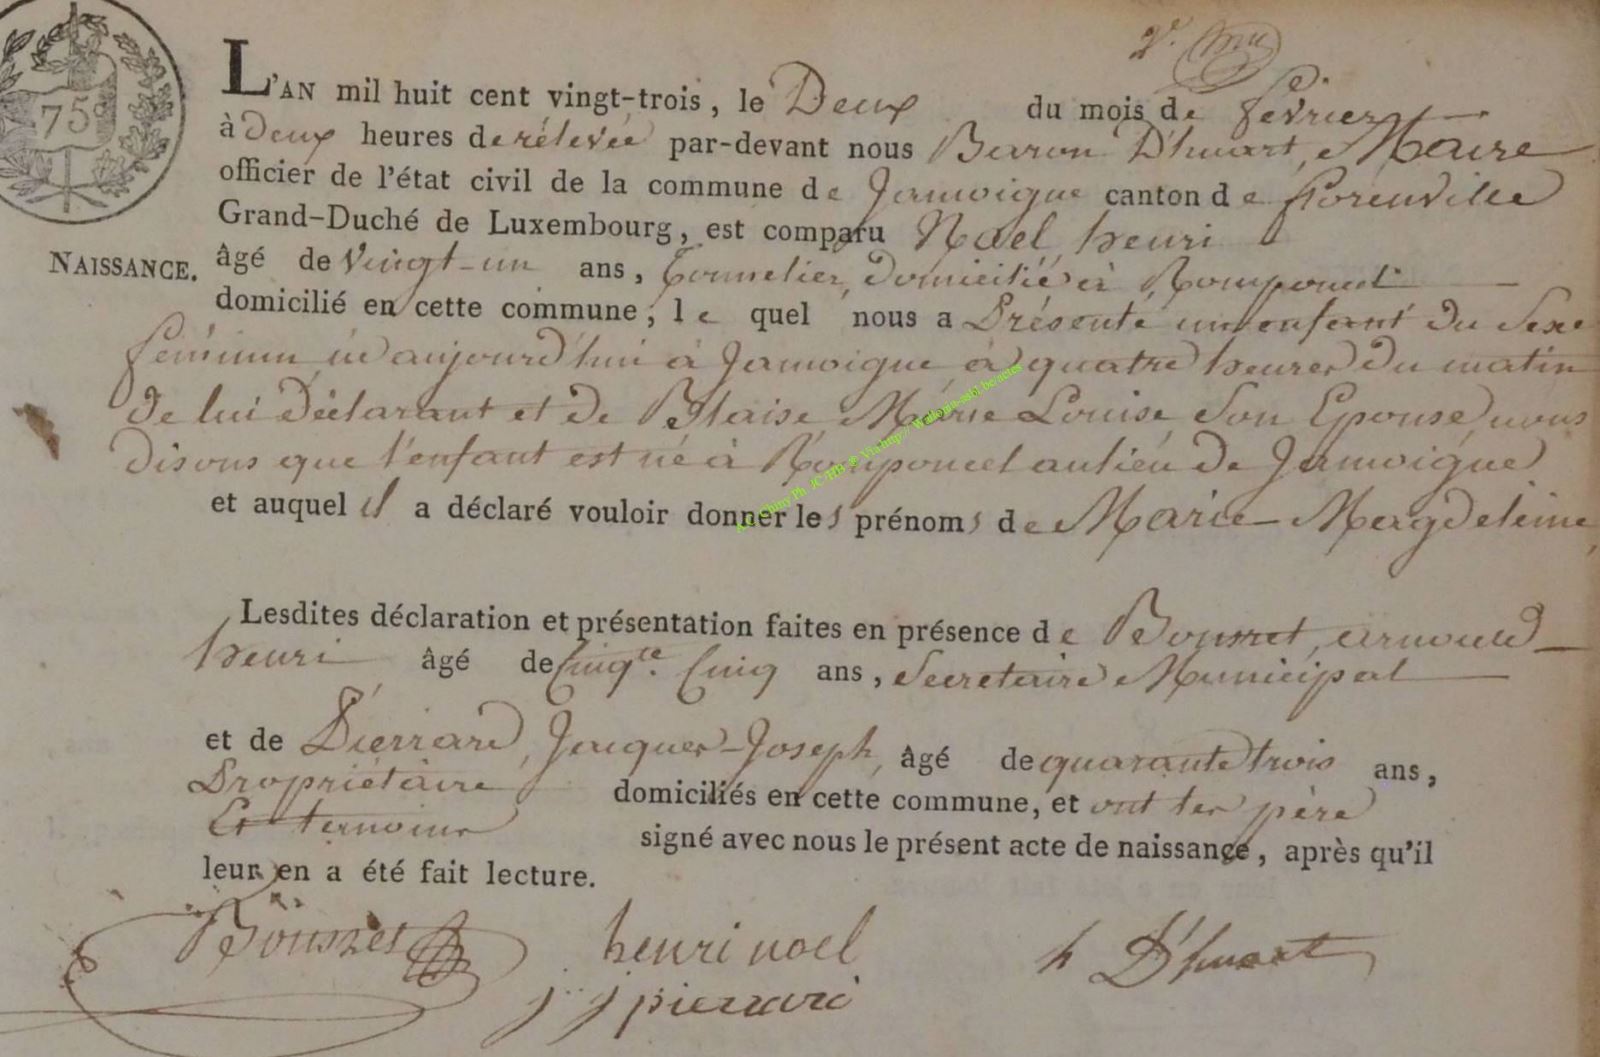 75
L'AN mil huit cent vingt-trois, le Deux du mois de fevrier
à Deux heures de rélevée par-devant nous Baron D'huart, Maire
officier de l'état civil de la commune de Jamoigne canton de florenville
Grand-Duché de Luxembourg, est comparu Noël, henri
NAISSANCE. âgé de Vingt-un ans, Tonnelier, domicilié à Romponcel
domicilié en cette commune, le quel nous a Présenté un enfant du Sexe
feminin né aujourd'hui à Jamoigne à quatre heures du matin
de lui Déclarant et de Blaise Marie Louise Son Epouse, nous
disons que l'enfant est né à Romponcel au lieu de Jamoigne
et auquel il a déclaré vouloir donner les prénoms de Marie-Magdeleine
Lesdites déclaration et présentation faites en présence de arnould
henri âgé de Cinqte. Cinq ans, Secretaire Municipal
et de Pierrard, Jacques-Joseph, âgé de quarante trois ans,
Propriétaire domiciliés en cette commune, et ont les père
Et temoins signé avec nous le présent acte de naissance, après qu'il
leur en a été fait lecture.
henri noel
h D'huart
j j pierrard